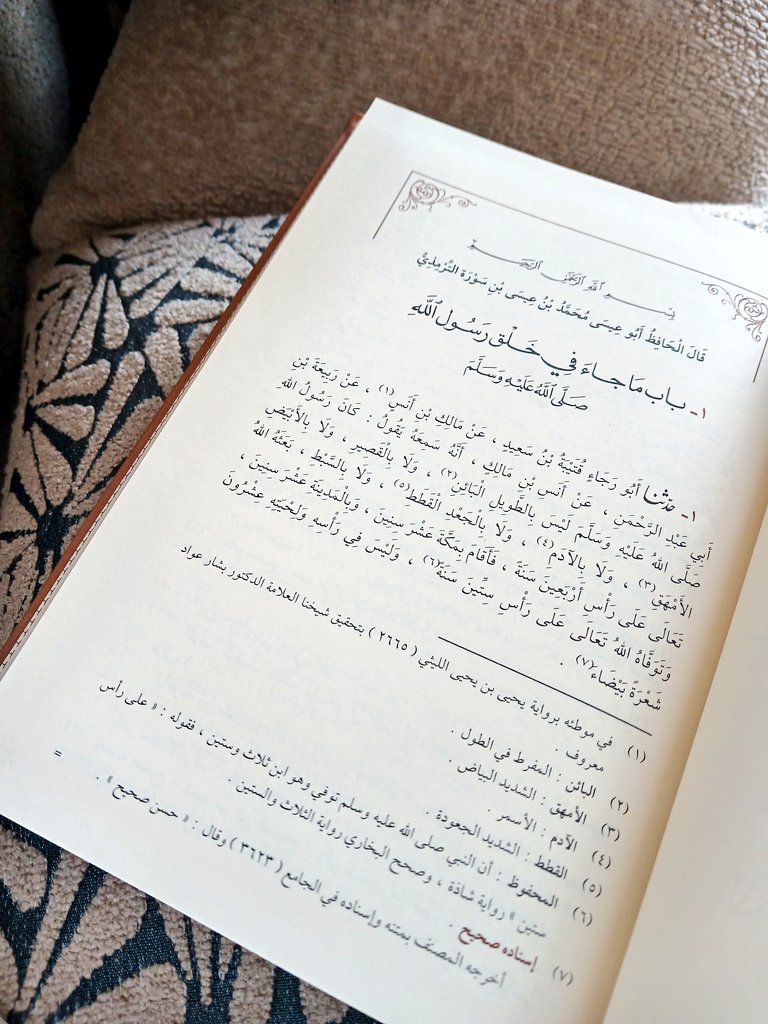 بِسْمِ اللهِ الرَّحْمٰنِ الرَّحِيمِ
قَالَ الْحَافِظُ أَبُو عِيسَى مُحَمَّدُ بْنُ عِيسَى بْنِ سَوْرَةَ التِّرْمِذِيُّ
١- بَابُ مَا جَاءَ فِي خَلْقِ رَسُولِ اللَّهِ
صَلَّى اللَّهُ عَلَيْهِ وَسَلَّمَ
١- حَدَّثَنَا أَبُو رَجَاءٍ قُتَيْبَةُ بْنُ سَعِيدٍ ، عَنْ مَالِكِ بْنِ أَنَسٍ(١) ، عَنْ رَبِيعَةَ بْنِ
أَبِي عَبْدِ الرَّحْمَنِ ، عَنْ أَنَسِ بْنِ مَالِكٍ ، أَنَّهُ سَمِعَهُ يَقُولُ : كَانَ رَسُولُ اللهِ
صَلَّى اللهُ عَلَيْهِ وَسَلَّمَ لَيْسَ بِالطَّوِيلِ الْبَائِنِ(٢) ، وَلَا بِالْقَصِيرِ ، وَلَا بِالْأَبْيَضِ
الْأَمْهَقِ(٣) ، وَلَا بِالْآدَمِ(٤) ، وَلَا بِالْجَعْدِ الْقَطَطِ(٥) ، وَلَا بِالسَّبْطِ ، بَعَثَهُ اللهُ
تَعَالَى عَلَى رَأْسِ أَرْبَعِينَ سَنَةً ، فَأَقَامَ بِمَكَّةَ عَشْرَ سِنِينَ ، وَبِالْمَدِينَةِ عَشْرَ سِنِينَ ،
وَتَوَفَّاهُ اللهُ تَعَالَى عَلَى رَأْسِ سِتِّينَ سَنَةً(٦) ، وَلَيْسَ فِي رَأْسِهِ وَلِحْيَتِهِ عِشْرُونَ
شَعْرَةً بَيْضَاءَ(٧) .
(١) في موطئه برواية يحيى بن يحيى الليثي (٢٦٦٥) بتحقيق شيخنا العلامة الدكتور بشار عواد
معروف .
(٢) البائن : المفرط في الطول .
(٣) الأمهق : الشديد البياض .
(٤) الآدم : الأسمر .
(٥) القطط : الشديد الجعودة .
(٦) المحفوظ : أن النبي صلى الله عليه وسلم توفي وهو ابن ثلاث وستين ، فقوله : « على رأس
ستين » رواية شاذة ، وصحح البخاري رواية الثلاث والستين .
(٧) إسناده صحيح .
أخرجه المصنف بمتنه وإسناده في الجامع (٣٦٢٣) وقال : « حسن صحيح » .
=